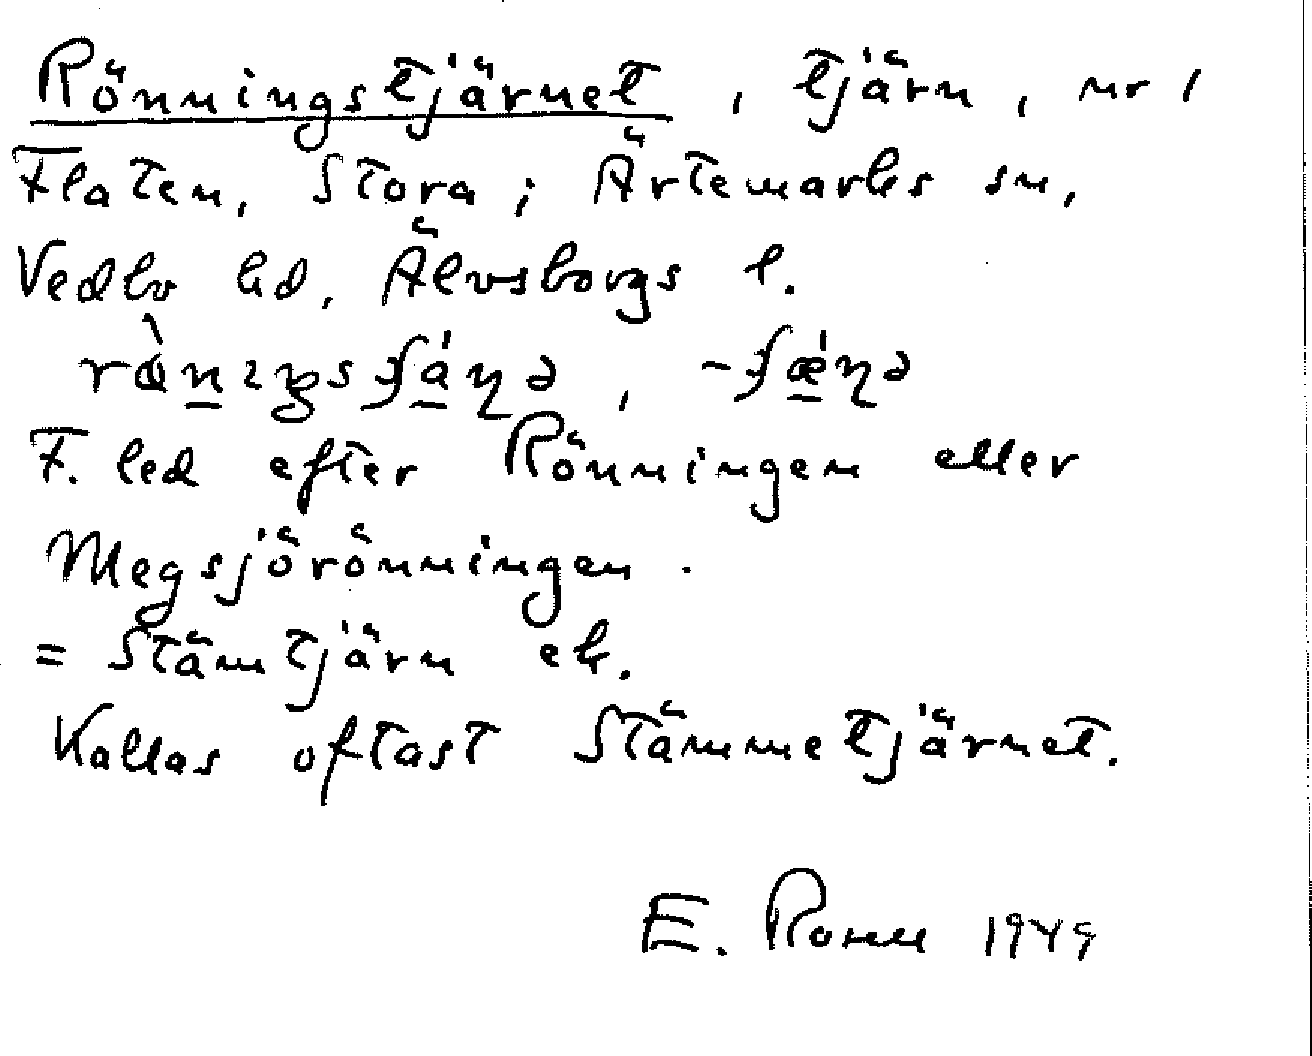 Rönningstjärnet, tjärn, nr 1
Flaten, Stora; Ärtemarks sn,
Vedbo hd, Älvsborgs l.
F. led efter Rönningen eller
Megsjörönningen.
= Stämtjärn ek.
Kallas oftast Stämmetjärnet.
E. Rosell 1949